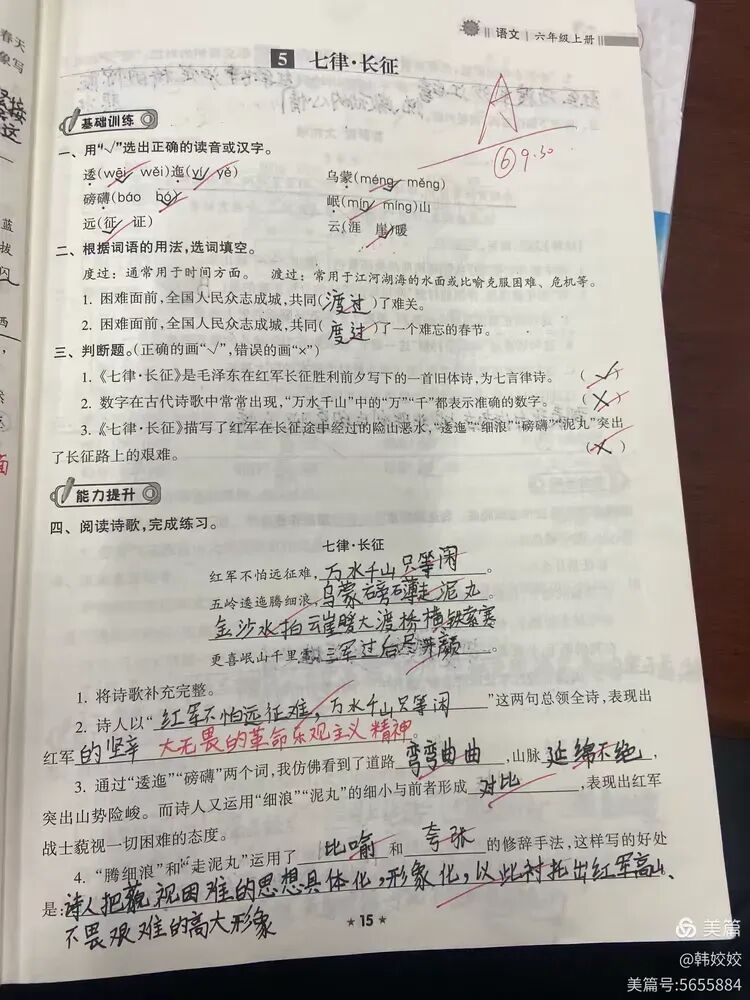 语文 六年级上册
5 七律·长征
A
⑥9.30
基础训练
一、用“√”选出正确的读音或汉字。
逶(wēi wěi)迤(yí yǐ) 乌蒙(méng měng)
磅礴(báo bó) 岷(mín míng)山
远(征 证) 云(涯 崖)暖
二、根据词语的用法,选词填空。
度过:通常用于时间方面。 渡过:常用于江河湖海的水面或比喻克服困难、危机等。
1. 困难面前,全国人民众志成城,共同(渡过)了难关。
2. 困难面前,全国人民众志成城,共同(度过)了一个难忘的春节。
三、判断题。(正确的画“√”,错误的画“×”)
1.《七律·长征》是毛泽东在红军长征胜利前夕写下的一首旧体诗,为七言律诗。 (√)
2. 数字在古代诗歌中常常出现,“万水千山”中的“万”“千”都表示准确的数字。 (×)
3.《七律·长征》描写了红军在长征途中经过的险山恶水,“逶迤”“细浪”“磅礴”“泥丸”突出
了长征路上的艰难。 (×)
能力提升
四、阅读诗歌,完成练习。
七律·长征
红军不怕远征难,万水千山只等闲。
五岭逶迤腾细浪,乌蒙磅礴走泥丸。
金沙水拍云崖暖大渡桥横铁索寒
更喜岷山千里雪,三军过后尽开颜。
1. 将诗歌补充完整。
2. 诗人以“红军不怕远征难,万水千山只等闲”这两句总领全诗,表现出
红军的坚辛 大无畏的革命乐观主义精神。
3. 通过“逶迤”“磅礴”两个词,我仿佛看到了道路弯弯曲曲,山脉延绵不绝,
突出出山势险峻。而诗人又运用“细浪”“泥丸”的细小与前者形成对比,表现出红军
战士藐视一切困难的态度。
4. “腾细浪”和“走泥丸”运用了比喻和夸张的修辞手法,这样写的好处
是:诗人把藐视困难的思想具体化,形象化,以此衬托出红军高山、
不畏艰难的高大形象
★ 15 ★
美篇
@韩姣姣
美篇号:5655884